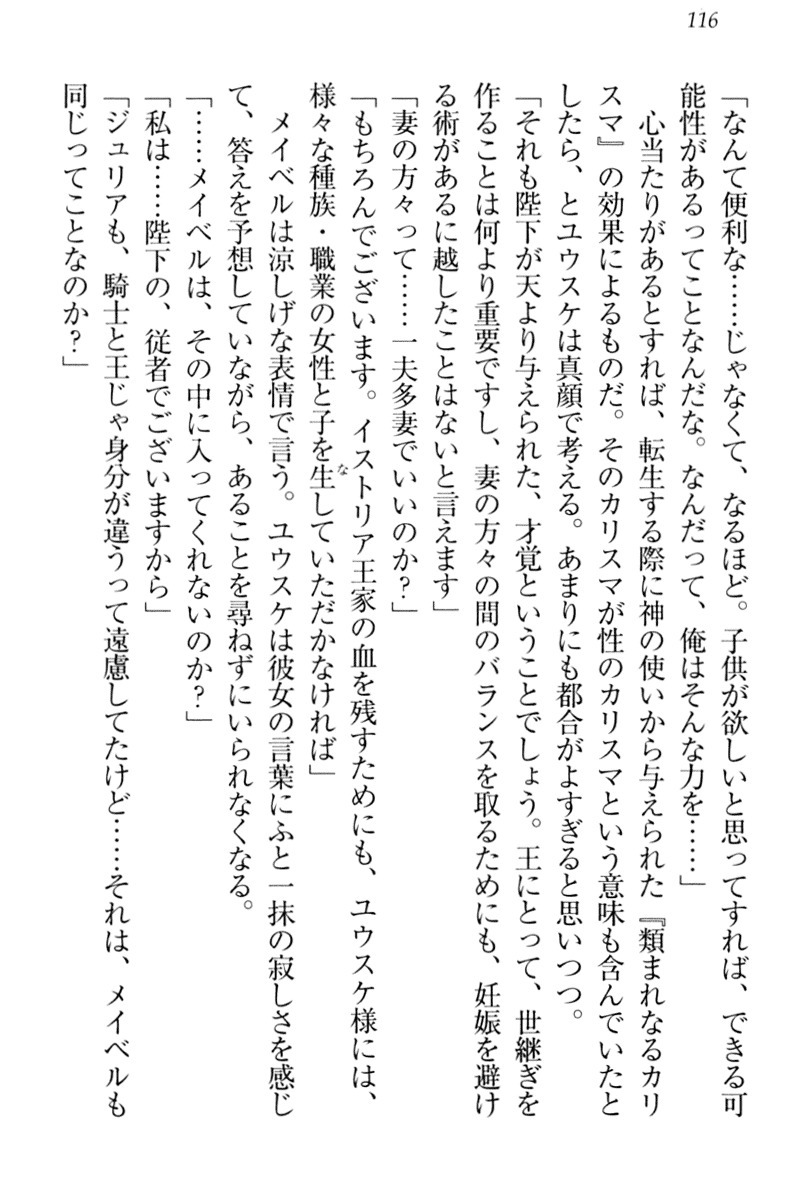 116
「なんて便利な……じゃなくて、なるほど。子供が欲しいと思ってすれば、できる可
能性があるってことなんだな。なんだって、俺はそんな力を……」
　心当たりがあるとすれば、転生する際に神の使いから与えられた『類まれなるカリ
スマ』の効果によるものだ。そのカリスマが性のカリスマという意味も含んでいたと
したら、とユウスケは真顔で考える。あまりにも都合がよすぎると思いつつ。
「それも陛下が天より与えられた、才覚ということでしょう。王にとって、世継ぎを
作ることは何より重要ですし、妻の方々の間のバランスを取るためにも、妊娠を避け
る術があるに越したことはないと言えます」
「妻の方々って……一夫多妻でいいのか？」
「もちろんでございます。イストリア王家の血を残すためにも、ユウスケ様には、
様々な種族・職業の女性と子を生なしていただかなければ」
　メイベルは涼しげな表情で言う。ユウスケは彼女の言葉にふと一抹の寂しさを感じ
て、答えを予想していながら、あることを尋ねずにいられなくなる。
「……メイベルは、その中に入ってくれないのか？」
「私は……陛下の、従者でございますから」
「ジュリアも、騎士と王じゃ身分が違うって遠慮してたけど……それは、メイベルも
同じってことなのか？」